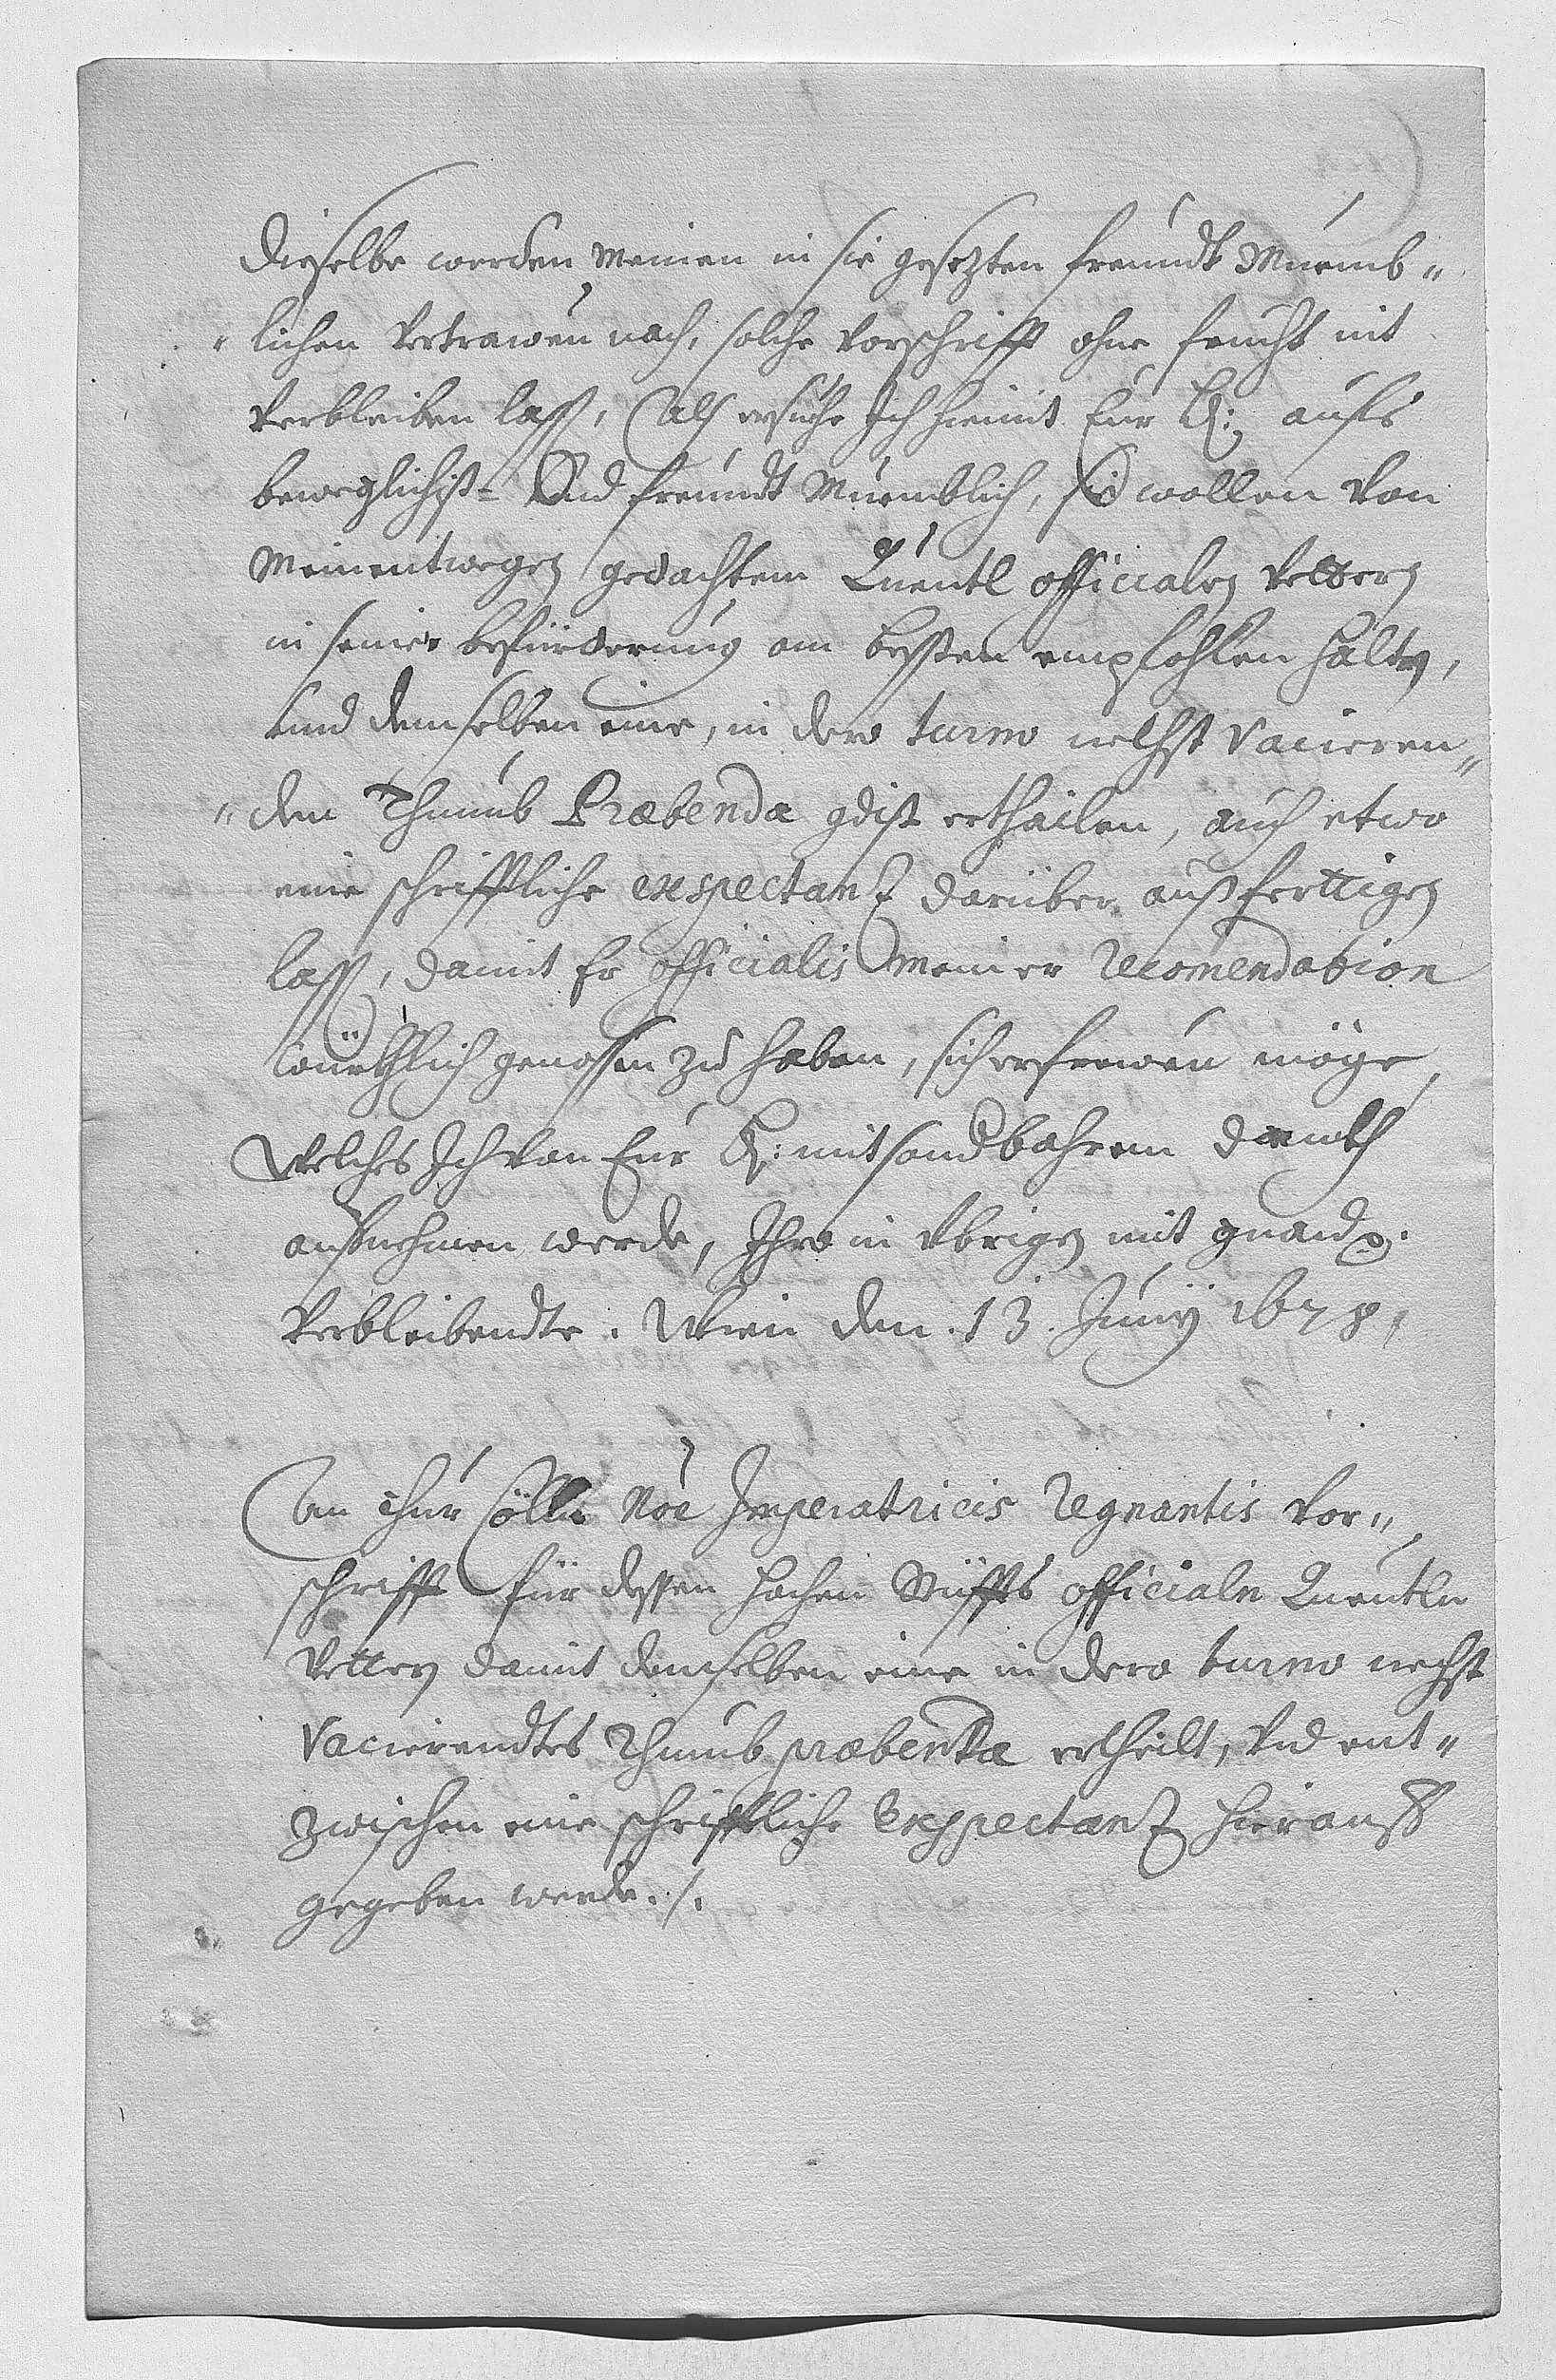 dieselbe werden meinen in sie gesezten freundt Muemb„
„lichen Vertrawen nach, solche Vorschrifft ohne frucht nit
Verbleiben lass, Als ersuche Ich hiemit Eür L: aufs
beweglichist= Vnd freundt Müemblich, sie wollen Von
Meinentwegen gedachtem Quentl officialen Vettern
in seiner befürderung am besten empfohlen halten,
Vnd demselben eine, in dero turno nechst Vacieren„
„den Thumb Præbendæ gdist erthailen, auch etwo
eine schrifftliche exspectanz darüber außferttigen
lass, damit Er officialis meiner Recomendation
würkhlich genossen zu haben, sich erfrewen möge,
Welches Ich von Eür L: mit sonndbahrem dankh
aufnehmen werde, Ihro in Vbrigen mit gnaden
Verbleibendte. Wien den. 13. Junÿ 1678.
An Chur Cölln Nõe Imperatricis Regnantis Vor„
schrifft für dessen hochen Stüffts officialn Quentln
Vettern damit demselben eine in dero turno nechst
Vacierendtes Thumb præbendæ ertheilt, Vnd ent„
zwischen eine schrifftliche Exspectanz hierauß
gegeben werde./.